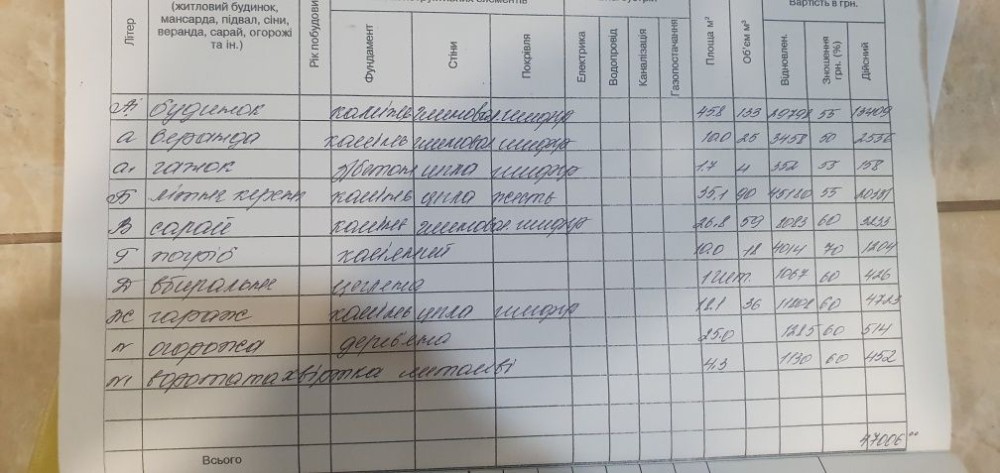 конструктивних елементів
Вартість в грн.
Літер
(житловий будинок, мансарда, підвал, сіни, веранда, сарай, огорожі та ін.)
Рік побудови
Фундамент
Стіни
Покрівля
Електрика
Водопровід
Каналізація
Газопостачання
Площа м²
Об'єм м³
Відновлен.
Зношення грн. (%)
Дійсний
А будинок камінь глинова шифер 45.8 133 55
а веранда камінь глинова шифер 10.0 25 3458 50
а₁ ганок бетон цегла шифер 1.7 4 352 55 158
Б літня кухня камінь цегла жесть 35.1 90 45180 55
В сарай камінь глинов. шифер 26.8 59 8083 60 3233
Г погріб кам'яний 10.0 18 4014 70 1204
Д вбиральня цегляна 1 шт. 1067 60 426
Ж гараж камінь цегла шифер 18.1 36 60 4723
N огорожа дерев'яна 25.0 1285 60 514
N1 ворота та хвіртка металеві 4.3 1130 60 452
Всього 47006